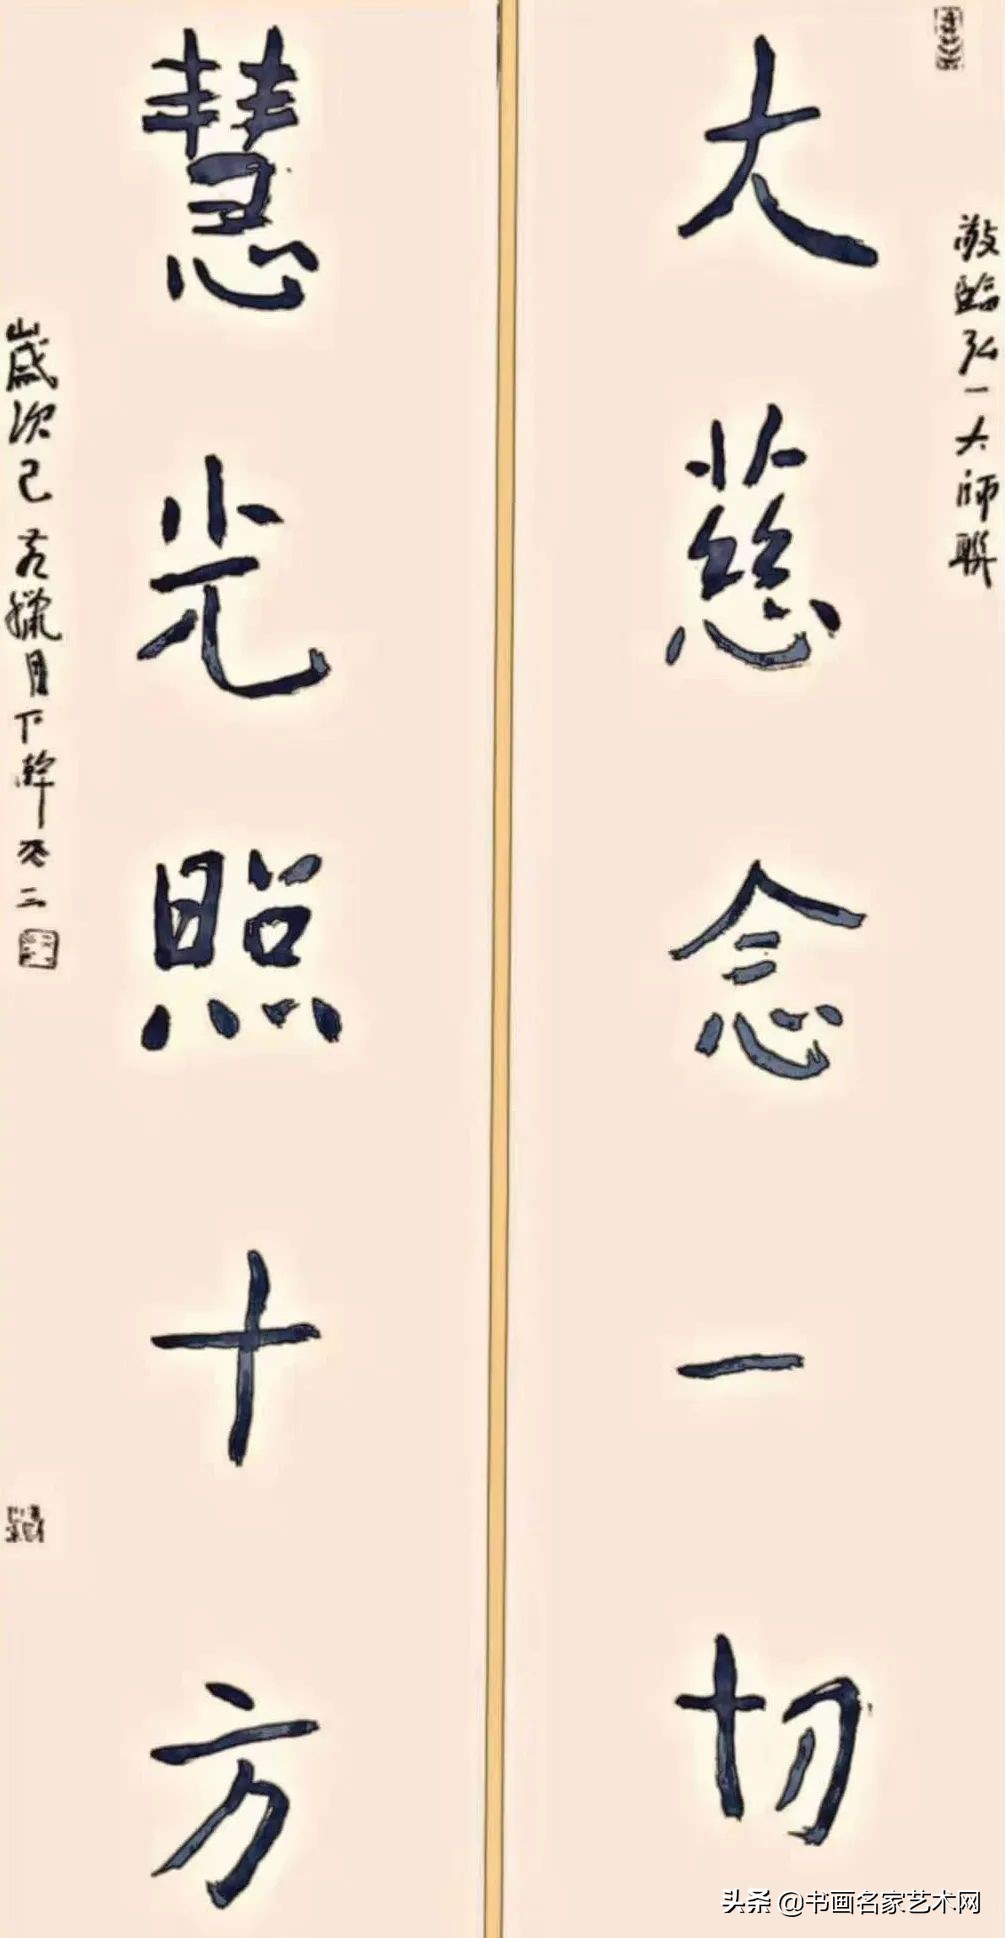 敬臨弘一大師聯
大慈念一切
慧光照十方
歲次己亥臘月下澣
头条 @书画名家艺术网